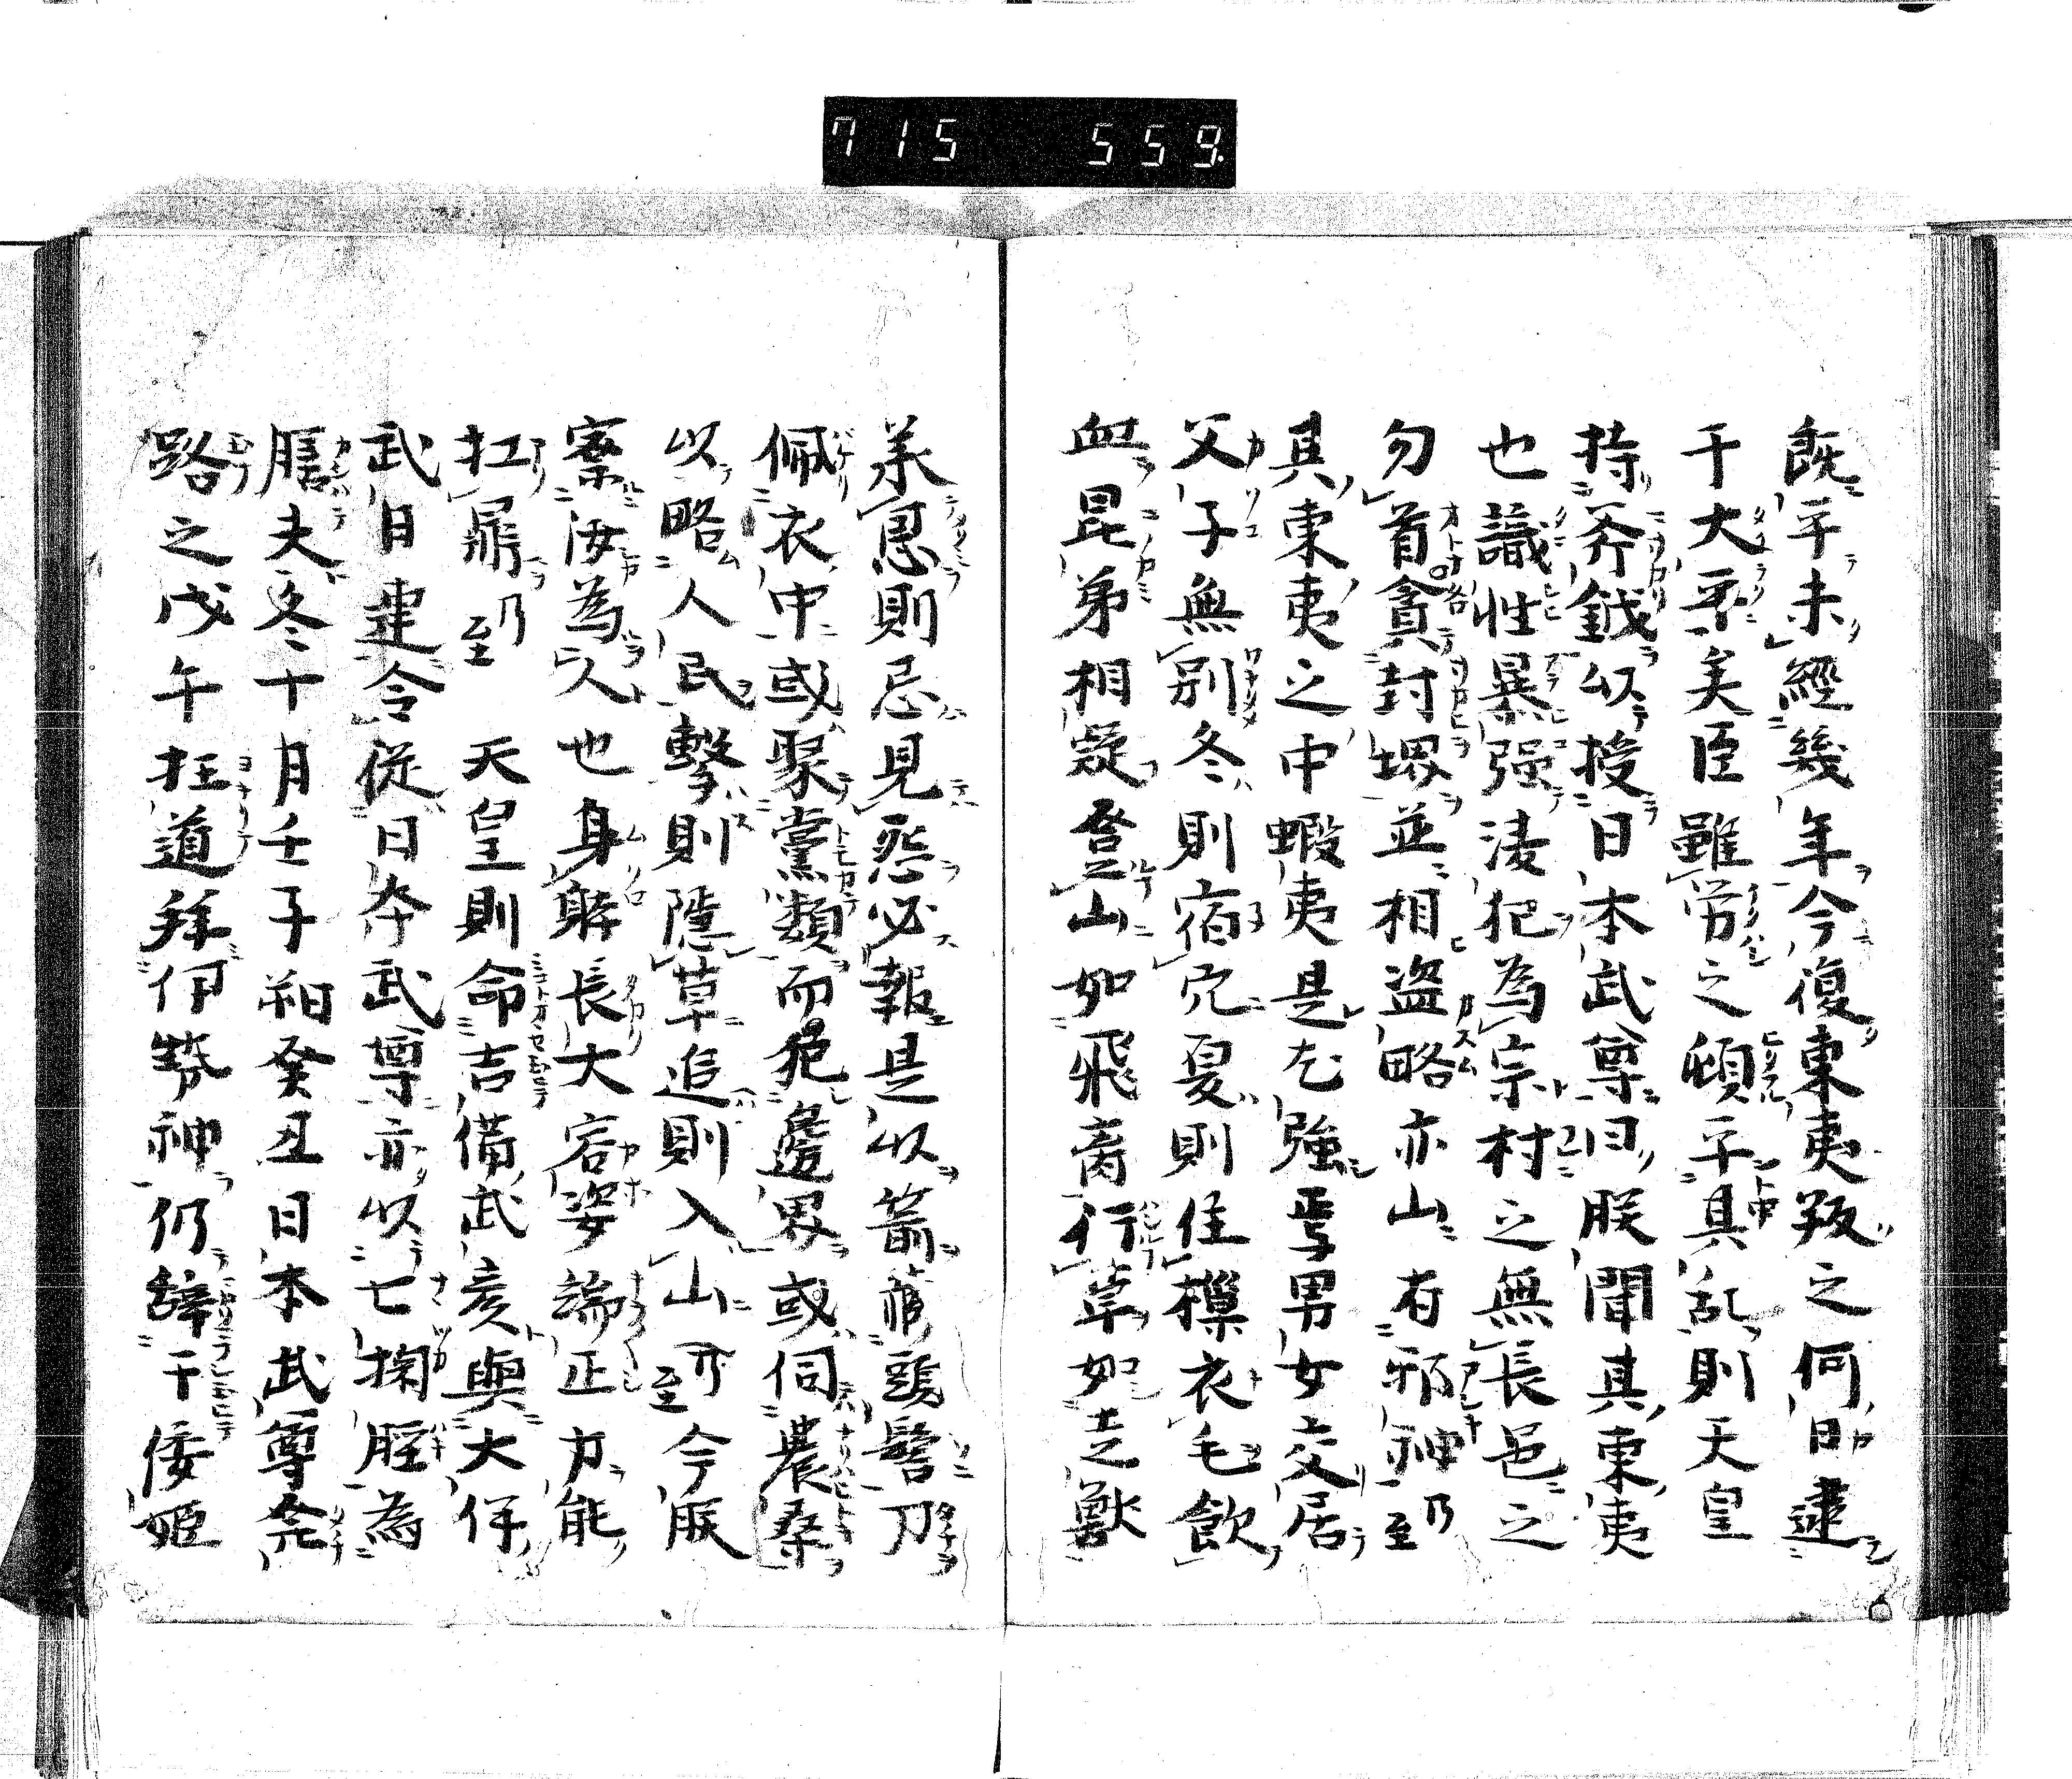 715 559.
既平未經幾年今復東夷叛之何日逮
于大平矣臣雖労之頓平其乱則天皇
持斧鉞以授日本武尊曰朕聞其東夷
也識性暴强淩犯為宗村之無長邑之
勿首貪封堺並相盜略亦山有邪神乃至
其東夷之中蝦夷是尤強焉男女交居
父子無別冬則宿穴夏則住樔衣毛飲
血昆弟相疑登山如飛禽行草如走獣
承恩則忘見怨必報是以箭蔵頭髻刀
佩衣中或聚黨類而犯邊界或伺農桑
以略人民擊則隠草追則入山乃至今朕
察汝為人也身躰長大容姿端正力能
扛鼎乃至　天皇則命吉備武彦與大伴
武日連令従日本武尊亦以七掬脛為
膳夫冬十月壬子朔癸丑日本武尊発
路之戊午抂道拜伊勢神仍辞于倭姫